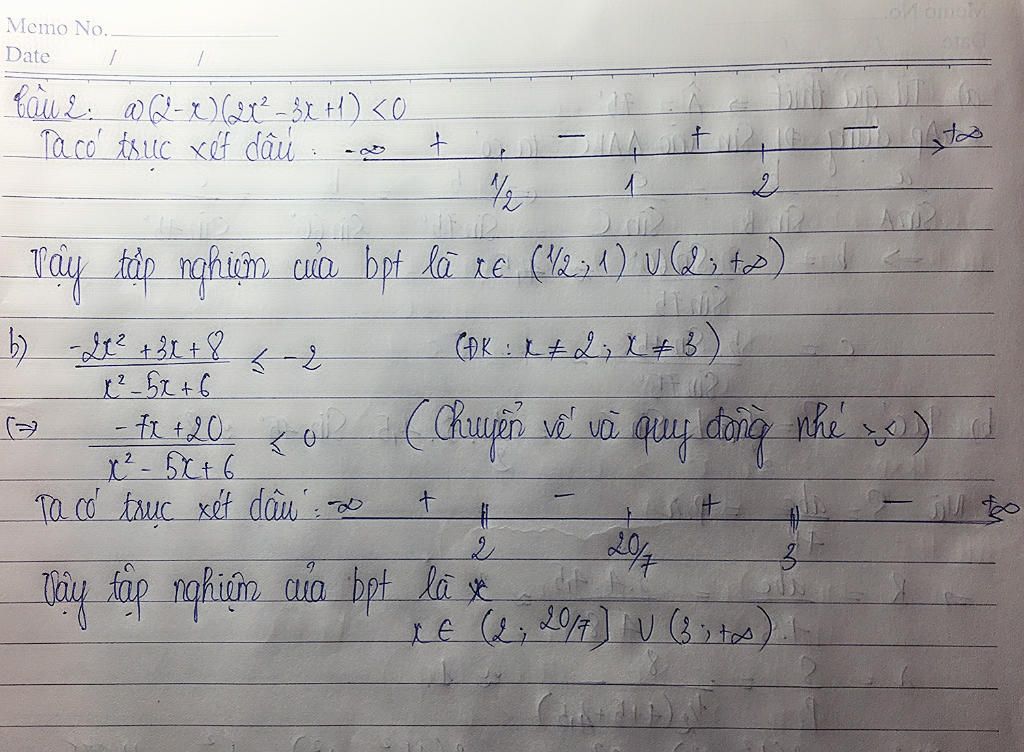 Memo No.
Date / /
Câu 2: a) (2-x)(2x² -3x+1) <0
Ta có trục xét dấu: -∞ + - + - +∞
1/2 1 2
Vậy tập nghiệm của bpt là x∈ (1/2; 1) ∪ (2; +∞)
b) (-2x² +3x+8)/(x² -5x+6) ≤ -2 (ĐK: x ≠ 2; x ≠ 3)
(=> (-7x+20)/(x² - 5x+6) ≤ 0 (Chuyển vế và quy đồng nhé >,<)
Ta có trục xét dấu: -∞ + - + - +∞
2 20/7 3
Vậy tập nghiệm của bpt là x
x ∈ (2; 20/7] ∪ (3; +∞)